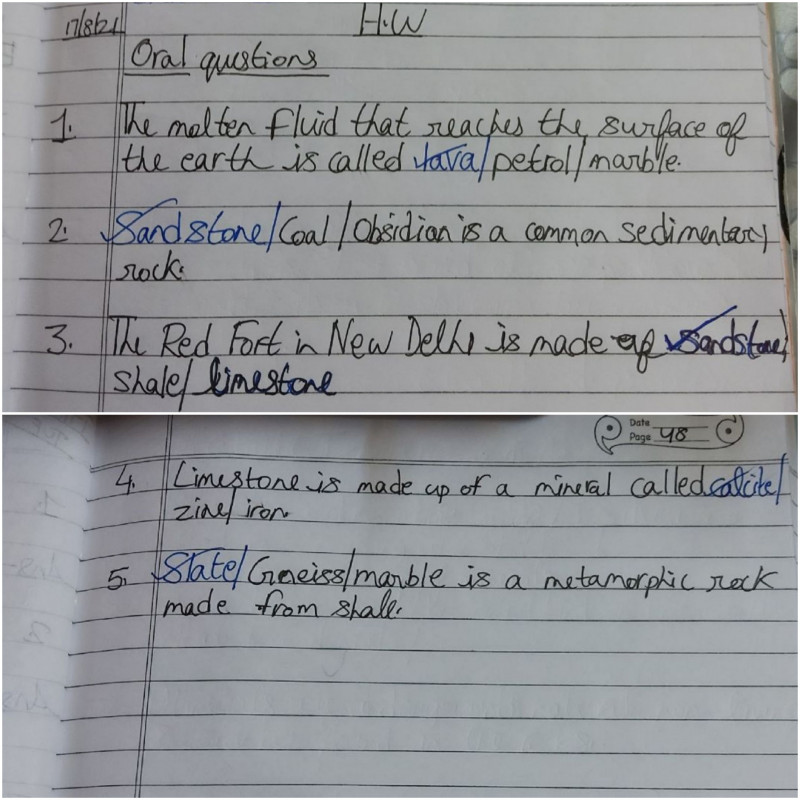 17/8/21
H.W
Oral questions
1. The molten fluid that reaches the surface of
the earth is called lava/petrol/marble.
2. Sandstone/Coal/Obsidian is a common sedimentary
rock.
3. The Red Fort in New Delhi is made of Sandstone/
shale/limestone
Date
Page 48
4. Limestone is made up of a mineral called calcite/
zine/iron.
5. Slate/Gneiss/marble is a metamorphic rock
made from shale.